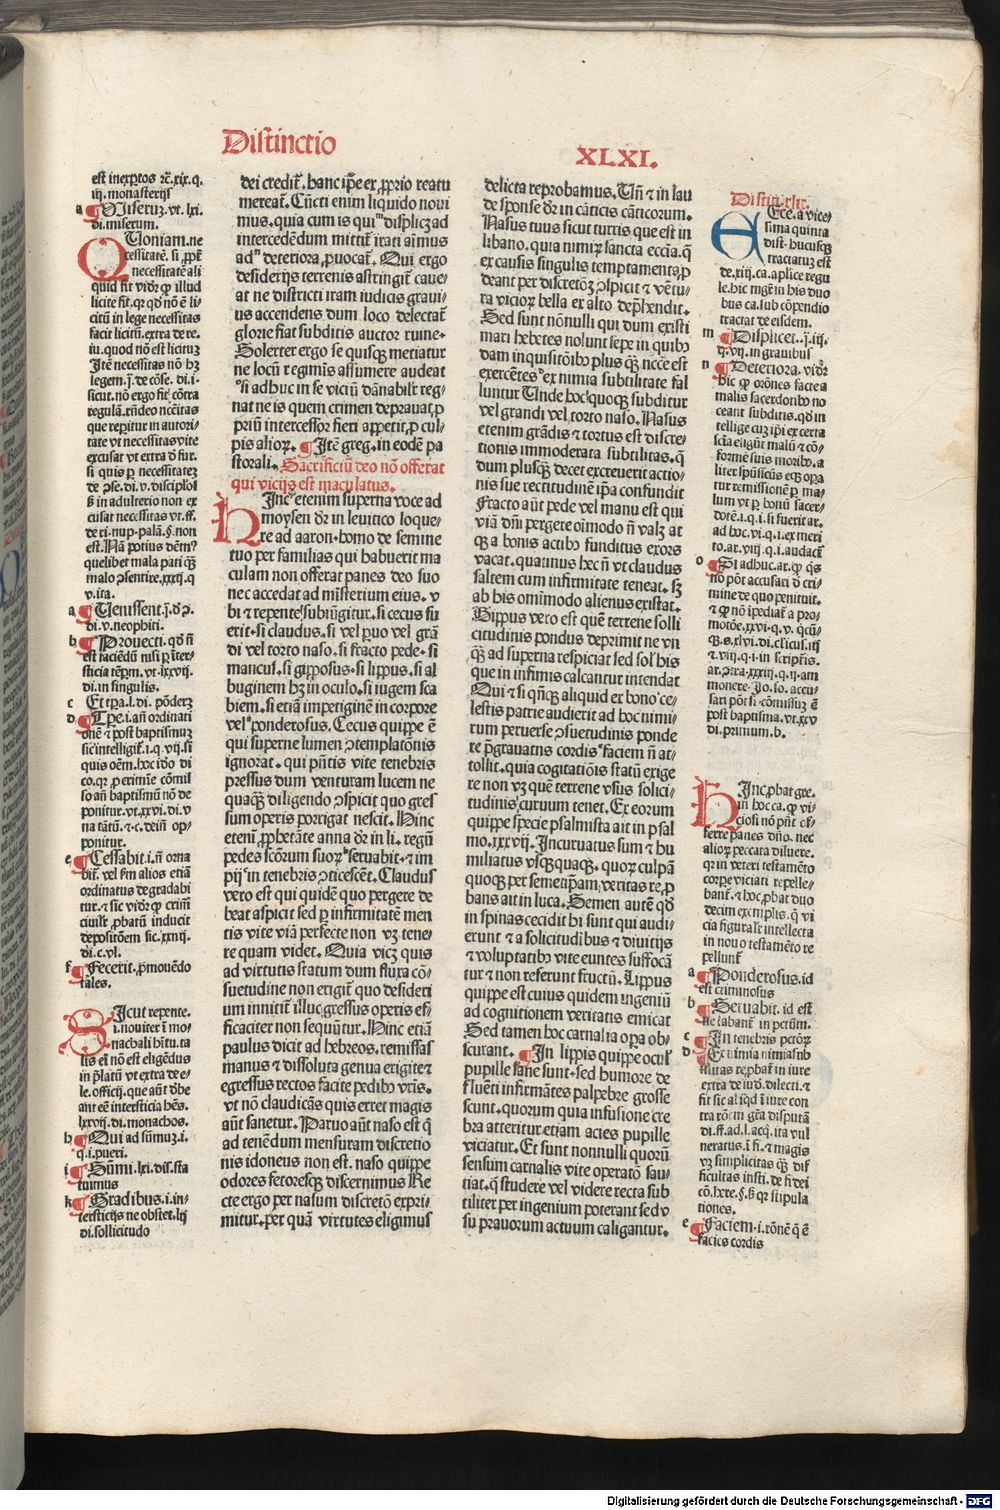 Distinctio
XLXI.
est inexptos rē.xix.q.
iij. monasterijs
a ¶ Miseruz. vt. lxi.
di. miserum.
QUoniam. ne
cessitatē. si ꝓpt̄
necessitatē ali
quid fit vidr̄ ꝙ illud
licite fit. qr qd nō ē li-
citū in lege necessitas
facit licitū. extra de re.
iu. quod nō est licituz
Itē necessitas nō hꝫ
legem. j. de cōse. di. i.
sicut. nō ergo fit cōtra
regulā. rn̄deo nccītas
que reperitur in autori-
tate vt necessitas vite
excusat vt extra d fur.
si quis p necessitatez
cusat necessitas vt. ff.
de ri. nup. palā. §. non
est. Nā potius dēm?
quelibet mala pati qȝ
malo ꝯsentire. xxxij. q
v. ita.
a ¶ Uenissent. j. d ꝯ.
di. v. neophiti.
b ¶ Prouecti. qd n̄
est faciēdū nisi p inter-
sticia tēpm. vt. lxxvij.
di. in singulis.
c Et tp̄a. l. di. pōderz
d ¶ Tp̄e. i. an̄ ordinati
onē ⁊ post baptismuz
sic intelligit. i. q. vij. si
quis oēm. hoc ido di
co. qr p crimīe cōmis
so an̄ baptismū nō de
ponitur. vt. xxvi. di. v
na tātū. ⁊. c. dein̄ op-
ponitur.
e ¶ Cessabit. i. n̄ orna
bit. vel sm alios etiā
ordinatus degradabi
tur. ⁊ sic vidr̄ ꝙ crimī
ciuilr̄ ꝓbatū inducit
depositōem sic. xxvij.
di. c. vl.
f ¶ Fecerit. ꝓmouēdo
tales.
SIcut repente.
i. nouiter ī mo-
nachali hītu. ta
lis eī nō est eligēdus
in p̄latū vt extra de e-
le. officij. que aūt dhe
ant eē intersticia hēs.
lxxvij. di. monachos.
h ¶ Qui ad sūmuz. i.
q. i. pueri.
i ¶ Sūmi. lxi. dis. sta
tuimus
k ¶ Gradibus. i. in-
tersticijs ne obstet. lxj
di. sollicitudo
dei credit. hanc ipse ex ꝓprio reatu
mereat. Cūcti enim liquido noui
mus. quia cum is qui displicz ad
intercedēdum mittit irati aīmus
ad deteriora ꝓuocat. Qui ergo
desiderijs terrenis astringit caue-
at ne districti iram iudicis graui-
us accendens dum loco delectat
glorie fiat subditis auctor ruine.
Solerter ergo se quisqȝ metiatur
ne locū regiminis assumere audeat
si adhuc in se viciū dānabilr̄ reg-
nat ne is quem crimen deprauat ꝓ
priū intercessor fieri appetit ꝓ cul-
pis alior. ¶ Itē greg. in eodē pa
storali. Sacrificiū deo nō offerat
qui vicijs est maculatus.
HInc etenim superna voce ad
moysen dr̄ in leuitico loque-
re ad aaron. homo de semine
tuo per familias qui habuerit ma
culam non offerat panes deo suo
nec accedat ad misterium eius. v
bi ⁊ repente subiūgitur. si cecus fu
erit. si claudus. si vel ꝑuo vel grā
di vel torto naso. si fracto pede. si
mancus. si gipposus. si lippus. si al
buginem hꝫ in oculo. si iugem sca
biem. si etiā impetiginē in corpore
vel ponderosus. Cecus quippe ē
qui superne lumen ꝯtemplatōnis
ignorat. qui pn̄tis vite tenebris
pressus dum venturam lucem ne
quaqȝ diligendo ꝯspicit quo gres
sum operis porrigat nescit. Hinc
eteni ꝓphetāte anna dr̄ in li. regū
pedes scōrum suor seruabit. ⁊ im
pij in tenebris ꝯticescēt. Claudus
vero est qui quidē quo pergere de
beat aspicit sed p infirmitatē men
tis vite viā perfecte non vȝ tene-
re quam videt. Quia vicȝ quis
ad virtutis statum dum fluxa cō-
suetudine non erigit quo desideri
um innitit illuc gressus operis ef-
ficaciter non sequūtur. Hinc etiā
paulus dicit ad hebreos. remissas
manus ⁊ dissoluta genua erigite ⁊
egressus rectos facite pedibꝫ vrīs.
vt nō claudicās quis erret magis
aūt sanetur. Paruo aūt naso est q
ad tenēdum mensuram discretio
nis idoneus non est. naso quippe
odores fetoresqȝ discernimus Re
cte ergo per nasum discretō expri-
mitur. per quā virtutes eligimus
delicta reprobamus. Un̄ ⁊ in lau
de sponse dr̄ in cāticis cāticorum.
Nasus tuus sicut turris que est in
libano. quia nimirz sancta eccīa. q
ex causis singulis temptamenta ꝓ
deant per discretōz ꝯspicit ⁊ vētu-
ra vicior bella ex alto deprhendit.
Sed sunt nōnulli qui dum existi
mari hebetes nolunt sepe in quibꝫ
dam inquisitōibꝫ plus qȝ necce est
exercētes ex nimia subtilitate fal
luntur Unde hoc quoqȝ subditur
vel grandi vel torto naso. Nasus
etenim grādis ⁊ tortus est discre-
tionis immoderata subtilitas. q
dum plusqȝ decet excreuerit actio-
nis sue rectitudinē ipa confundit
Fracto aūt pede vel manu est qui
viā dn̄i pergere oīmodo n̄ valȝ at
qȝ a bonis actibꝫ funditus exors
vacat. quatinus hec n̄ vt claudus
saltem cum infirmitate teneat. sꝫ
ab his omimodo alienus existat.
Gippus vero est quē terrene solli
citudinis pondus deprimit ne vn
qȝ ad superna respiciat sed sol his
que in infimis calcantur intendat
Qui ⁊ si qn̄qȝ aliquid ex bono ce-
lestis patrie audierit ad hoc nimi-
rum peruerse ꝯsuetudinis ponde
re pgrauatꝰ cordis faciem n̄ at-
tollit. quia cogitatiōis statū exige
re non vȝ quē terrene vsus solici-
tudinis curuum tenet. Ex eorum
quippe specie psalmista ait in psal
mo. xxxvij. Incuruatus sum ⁊ hu
miliatus vsqȝquaqȝ. quor culpā
quoqȝ per semetipam veritas re ꝓ
bans ait in luca. Semen autē qd
in spinas cecidit hi sunt qui audi-
erunt ⁊ a solicitudībus ⁊ diuitijs
⁊ voluptatibꝫ vite euntes suffocā
tur ⁊ non referunt fructū. Lippus
quippe est cuius quidem ingeniū
ad cognitionem veritatis emicat
Sed tamen hoc carnalia opa ob-
scurant. ¶ In lippis quippe ocul
pupille sane sunt. sed humore de
fluēti infirmātes palpebre grosse
scunt. quorum quia infusione cre
bra atteritur etiam acies pupille
viciatur. Et sunt nonnulli quorū
sensum carnalis vite operatō sau-
tiat. q studere vel videre recta sub
tiliter per ingenium poterant sed v
su prauorum actuum caligantur.
Distin. xlix.
ECce. a vice
sima quinta
dist. hucusqȝ
tractatuz est
de. xiij. ca. aplice regu
le. hic mgr̄ in his duo
bus ca. sub cōpendio
tractat de eisdem.
m ¶ Displicet. j. iij.
q. vij. in grauibus
n ¶ Deteriora. vidr̄
hic ꝙ orōnes factea
malis sacerdotibꝫ no
ceant subditis. qd in
tellige cuz ipi ex certa
scīa eligūt malū ⁊ cō-
formē suis moribꝫ. a
liter spūscūs eqȝ opa
tur remissionē p ma-
lum vt p bonū sacer-
dotē. i. q. i. si fuerit. ar.
ad hoc. vi. q. i. ex meri
to. ar. viij. q. i. audacter
o ¶ Si adhuc. ar. ꝙ qs
nō pōt accusari d cri-
mine de quo penituit.
⁊ ꝙ nō ipediat a pro-
motōe. xxvi. q. v. qcū-
qȝ. s. xlvi. di. clicus. iij
⁊ viij. q. i. in scriptis.
ar. ꝯtra. xxxij. q. ij. am
monere. Jo. so. accu-
sari pōt si cōmissuz ē
post baptisma. vt. xxv
di. primum. b.
HInc ꝓbat gre.
in hoc ca. ꝙ vi-
ciosi nō pn̄t of-
ferre panes dno. nec
alior peccata diluere.
qr in veteri testamēto
corpe viciati repelle-
bant. ⁊ hoc ꝓbat duo
decim exemplis. q vi
cia figuralr̄ intellecta
in nouo testamēto re
pellunt
a ¶ Ponderosus. id
est criminosus
b ¶ Seruabit. id est
ne labant in pctūm.
c ¶ In tenebris pctōrz
d ¶ Ex nimia nimia sub
tilitas reꝓbat in iure
extra de iud. dilecti. ⁊
fit sic aliqd ī iure con
tra rōem grā disputā
di. ff. ad. l. acq. ita vul
neratus. ī. fi. ⁊ magis
vȝ simplicitas qȝ dif
ficultas insti. de fi dei
cō. here. §. sꝫ qr stipula
tiones.
e ¶ Faciem. i. rōnē q ē
facies cordis
Digitalisierung gefördert durch die Deutsche Forschungsgemeinschaft - DFG